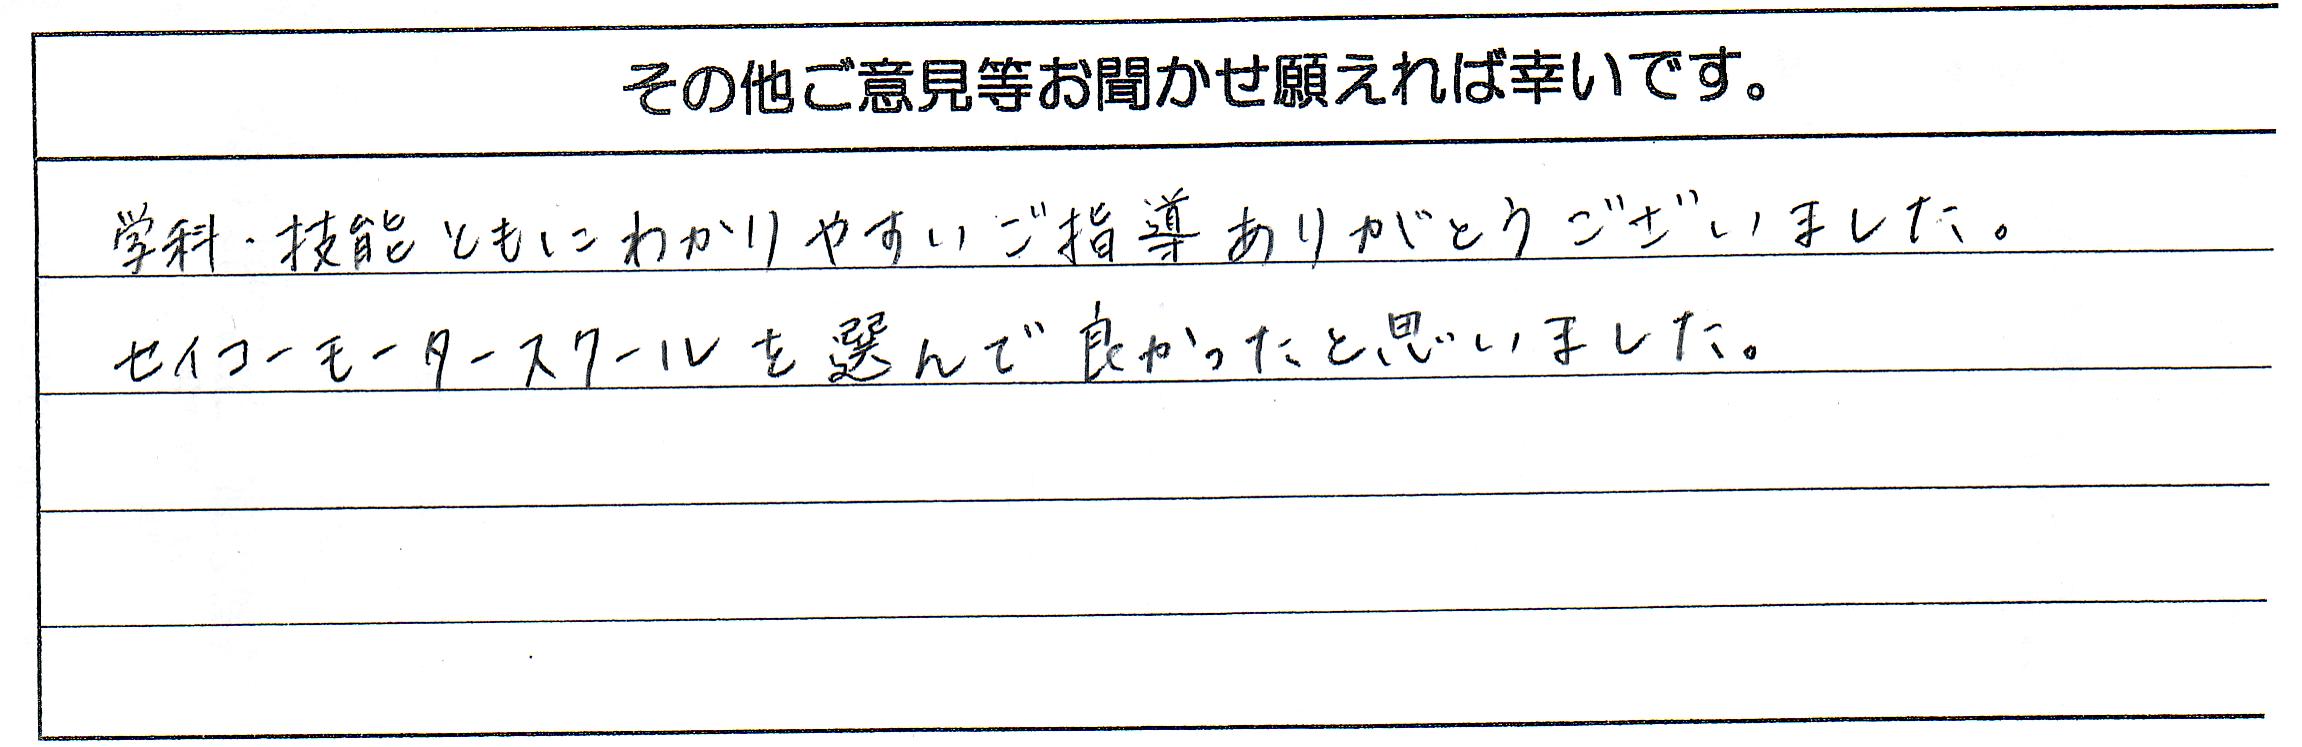 その他ご意見等お聞かせ願えれば幸いです。
学科・技能ともにわかりやすいご指導ありがとうございました。
セイコーモータースクールを選んで良かったと思いました。